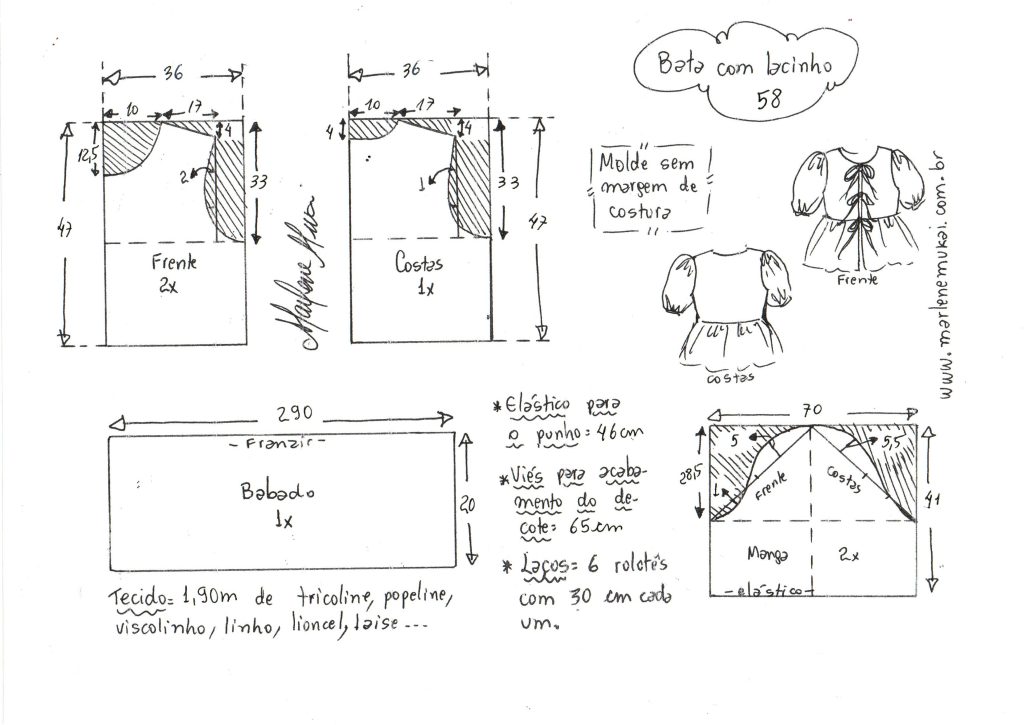 Bata com lacinho
58
36
10
17
4
12,5
2
33
47
Frente
2x
36
10
17
4
4
1
33
47
Costas
1x
Molde sem
margem de
costura
Frente
costas
www.marlenemukai.com.br
290
- Franzir -
Babado
1x
20
Tecido= 1,90m de tricoline, popeline,
viscolinho, linho, lioncel, laise ...
* Elástico para
o punho= 46cm
* Viés para acaba-
mento do de-
cote= 65cm
* Laços= 6 rolotês
com 30 cm cada
um.
70
5
5,5
28,5
1
Frente
Costas
41
Manga
2x
-elástico-